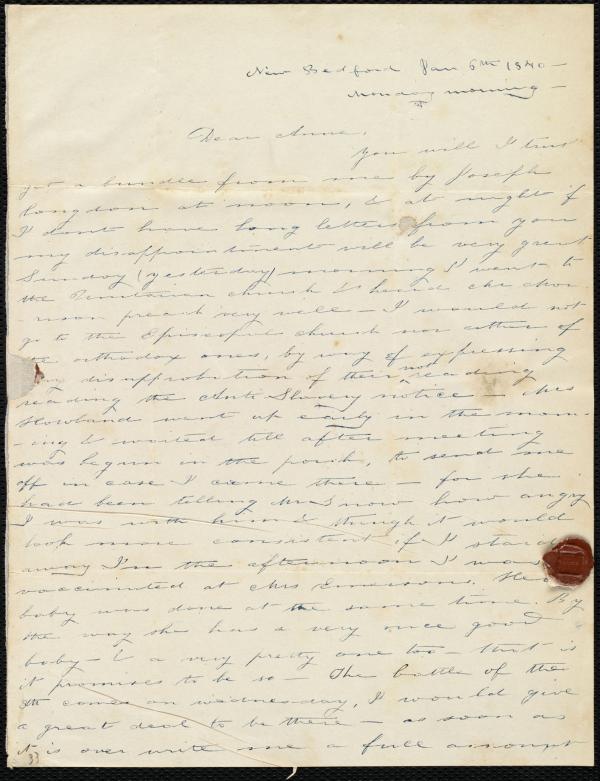 New Bedford Jan 6th 1840 -
Monday morning -
Dear Anne,
You will I trust
get a bundle from me by Joseph
Congdon at noon, & at night if
I dont have long letters from you
my disappointment will be very great
Sunday (yesterday) morning I went to
the Unitarian church & heard
preach very well - I would not
go to the Episcopal church nor either of
the orthodox ones, by way of expressing
my disapprobation of their not reading
reading the Anti Slavery notice - Mrs
Howland went up early in the morn-
-ing & waited till after meeting
was begun in the porch, to send me
off in case I came there - for she
had been telling Mr Snow how angry
I was with him & though it would
look more consistent if I staid
away. In the afternoon I was
vaccinated at Mrs Emersons. Her
baby was done at the same time. By
the way she has a very nice good
baby - & a very pretty one too - that is
it promises to be so - The battle of the
8th comes on wednesday, I would give
a great deal to be there - as soon as
it is over write me a full account
33